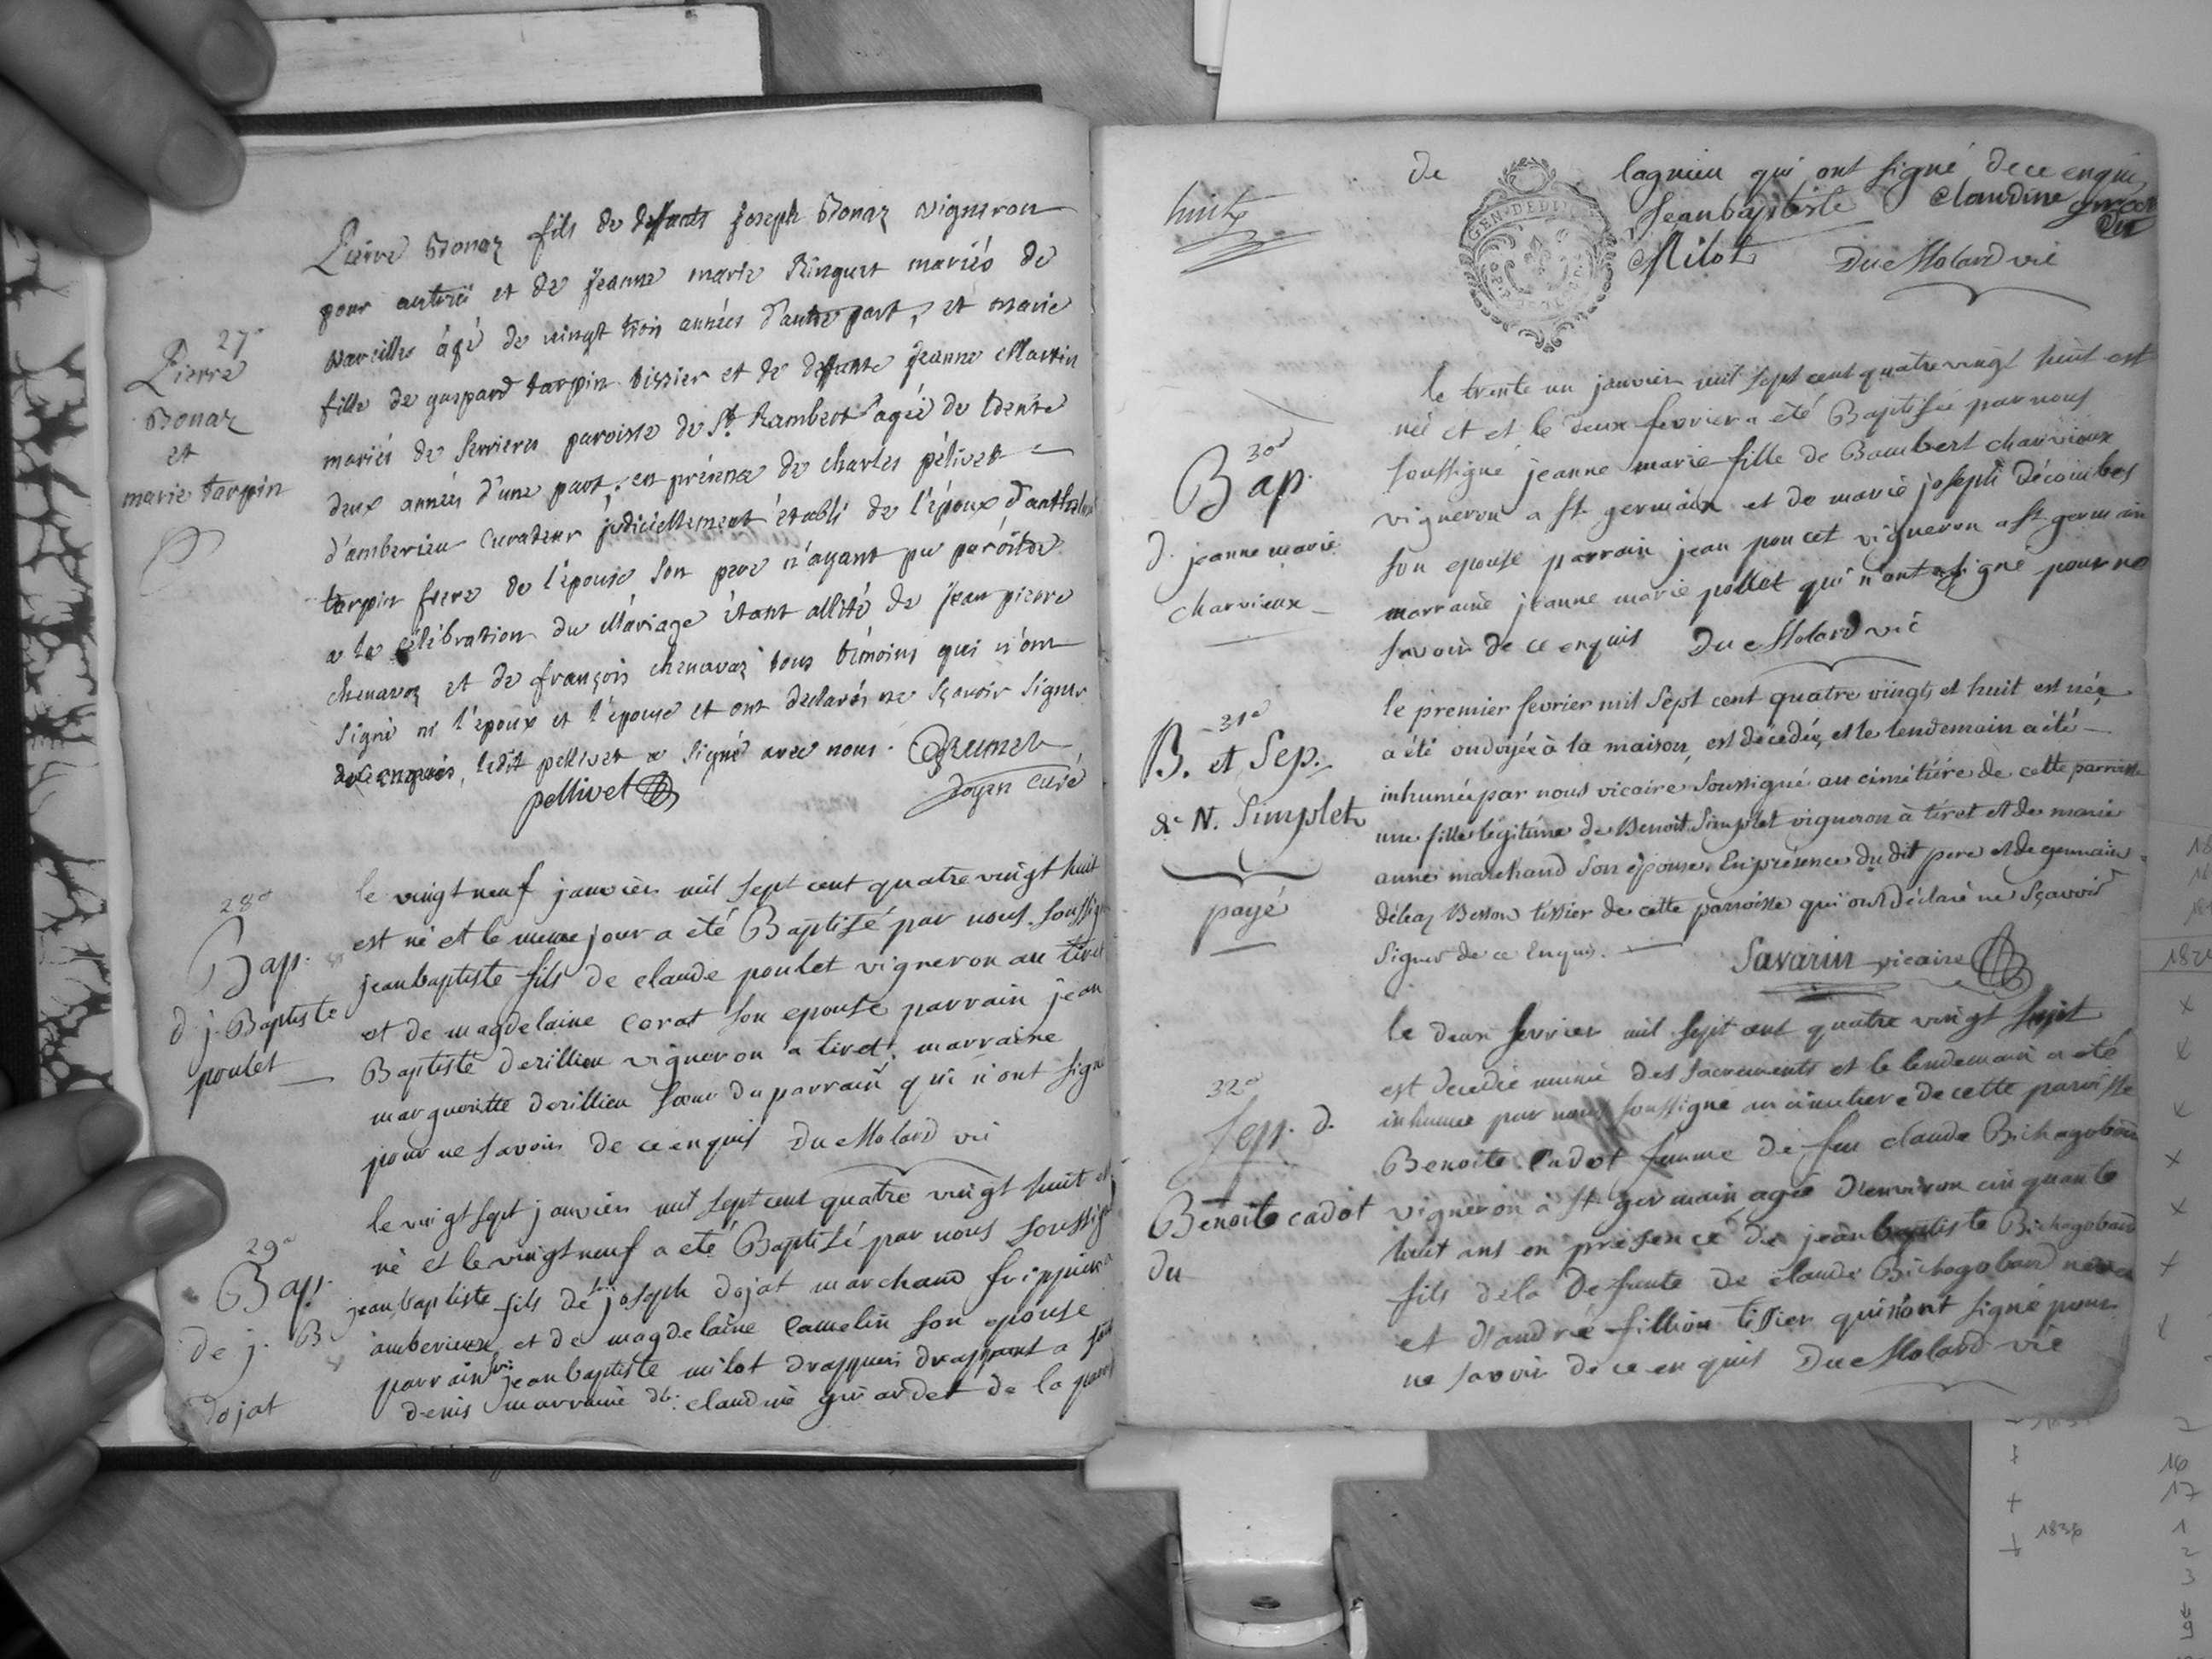 27e
Pierre
Bonaz
et
marie tarpin
Pierre Bonaz fils de deffunts Joseph Bonaz vigneron
pour autrui et de Jeanne marie Ringuet mariés de
vareilles âgé de vingt trois années d'autre part, et marie
fille de gaspard tarpin tissier et de deffunte Jeanne Martin
mariés de Serrieres paroisse de St Rambert agée de trente
deux années d'une part; en présence de charles pélivet
d'amberieu Curateur judiciellement établi de l'époux d'anthelme
tarpin frere de l'épouse son pere n'ayant pu paroître
a la célébration du Mariage étant allité de Jean pierre
chenavaz et de françois chenavaz tous témoins qui n'ont
signé ni l'époux et l'épouse et ont declarés ne sçavoir signer
de ce enquis, ledit pellivet a signé avec nous.
pellivet
doyen curé
28e
Bap.
d j. Baptiste
poulet
le vingt neuf janvier mil sept cent quatre vingt huit
est né et le meme jour a été Baptisé par nous soussigné
jean baptiste fils de claude poulet vigneron au tiret
et de magdelaine Corat son epouse parrain jean
Baptiste derillieu vigneron a tiret, marraine
marguerite derillieu sœur du parrain qui n'ont signé
pour ne savoir de ce enquis Du Molard vic
29e
Bap.
De j. B
Dojat
le vingt sept janvier mil sept cent quatre vingt huit est
né et le vingt neuf a été Baptisé par nous soussigné
jean baptiste fils de sr joseph dojat marchand frippier a
amberieux et de magdelaine Camelin son epouse
parrain sr jean baptiste milot drappier drappant a st
denis marraine dlle claudine guiardet de la paroisse
huit
de lagnieu qui ont signé de ce enquis
GEN·DE DI
Jean baptiste Claudine
Milot Du Molard vic
30e
Bap.
d. jeanne marie
charvieux
le trente un janvier mil sept cent quatre vingt huit est
née et et le deux fevrier a été Baptisée par nous
soussigné jeanne marie fille de Rambert charvieux
vigneron a st germain et de marie joseph Décombes
son epouse parrain jean poncet vigneron a st germain
marraine jeanne marie pollet qui n'ont signé pour ne
savoir de ce enquis Du Molard vic
31e
B. et Sep.
de N. Simplet
payé
le premier fevrier mil sept cent quatre vingt et huit est née
a été ondoyée à la maison, est décédée, et le lendemain a été
inhumée par nous vicaire soussigné au cimétiére de cette parroisse
une fille légitime de Benoit Simplet vigneron à tiret et de marie
anne marchand son épouse. En présence du dit pere et de germain
déléaz Besson tissier de cette parroisse qui ont déclaré ne sçavoir
signer de ce Enquis.
Savarin vicaire
32e
Sep. d.
Benoite cadot
du
le deux fevrier mil sept cent quatre vingt huit
est decedée munie des sacrements et le lendemain a été
inhumée par nous soussigné au cimetiere de cette paroisse
Benoite Cadot femme de feu claude Bichagoband
vigneron à st. germain agée d'environ cinquante
huit ans en présence de jean baptiste Bichagoband
fils de la defunte de claude Bichagoband neveu
et d'andré fillion tissier qui n'ont signé pour
ne savoir de ce enquis Du Molard vic
1836
16
17
1
2
3